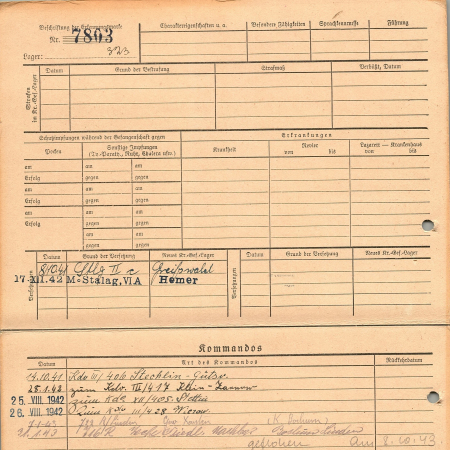 Beschriftung der Erkennungsmarke
Nr. 7803
Lager: 323
Charaktereigenschaften u. a.
Besondere Fähigkeiten
Sprachkenntnisse
Führung
Strafen im Kr.-Gef.-Lager
Datum
Grund der Bestrafung
Strafmaß
Verbüßt, Datum
Schutzimpfungen während der Gefangenschaft gegen
Erkrankungen
Pocken
Sonstige Impfungen
(Ty.-Paraty., Ruhr, Cholera usw.)
Krankheit
Revier
von bis
Lazarett — Krankenhaus
von bis
am am am
Erfolg gegen gegen
am am am
Erfolg gegen gegen
am am am
Erfolg gegen gegen
am am am
Erfolg gegen gegen
Versetzungen
Datum
Grund der Versetzung
Neues Kr.-Gef.-Lager
Versetzungen
Datum
Grund der Versetzung
Neues Kr.-Gef.-Lager
8.10.41 II c Greifswald
17. XII. 42 M.-Stalag, VI A Hemer
Kommandos
Datum
Art des Kommandos
Rückkehrdatum
14.10.41 Kdo III/406
28.1.42 zum Kdo. III/417
25. VIII. 1942 Zum Kdo XII/405 Stettin
26. VIII. 1942 Zum Kdo III/428
21.1.43
geflohen am 8.10.43